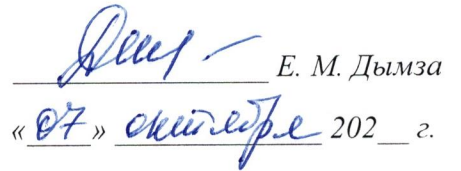 Е. М. Дымза
« 07 » октября 202__ г.